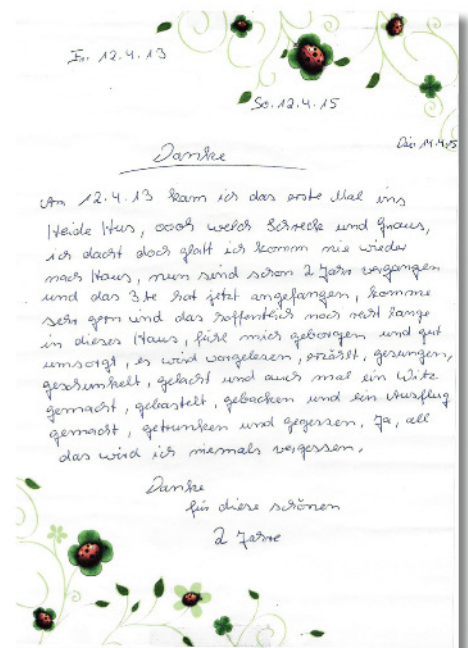 Fr. 12.4.13
So. 12.4.15
Die 14.4.15
Danke
Am 12.4.13 kam ich das erste Mal ins
Heide Hus, oooh welch Schreck und Graus,
ich dacht doch glatt ich komm nie wieder
nach Haus, nun sind schon 2 Jahre vergangen
und das 3te hat jetzt angefangen, komme
sehr gern und das hoffentlich noch recht lange
in dieses Haus, fühl mich geborgen und gut
umsorgt, es wird vorgelesen, erzählt, gesungen,
geschunkelt, gelacht und auch mal ein Witz
gemacht, gebastelt, gebacken und ein Ausflug
gemacht, getrunken und gegessen. Ja, all
das wird ich niemals vergessen.
Danke
für diese schönen
2 Jahre